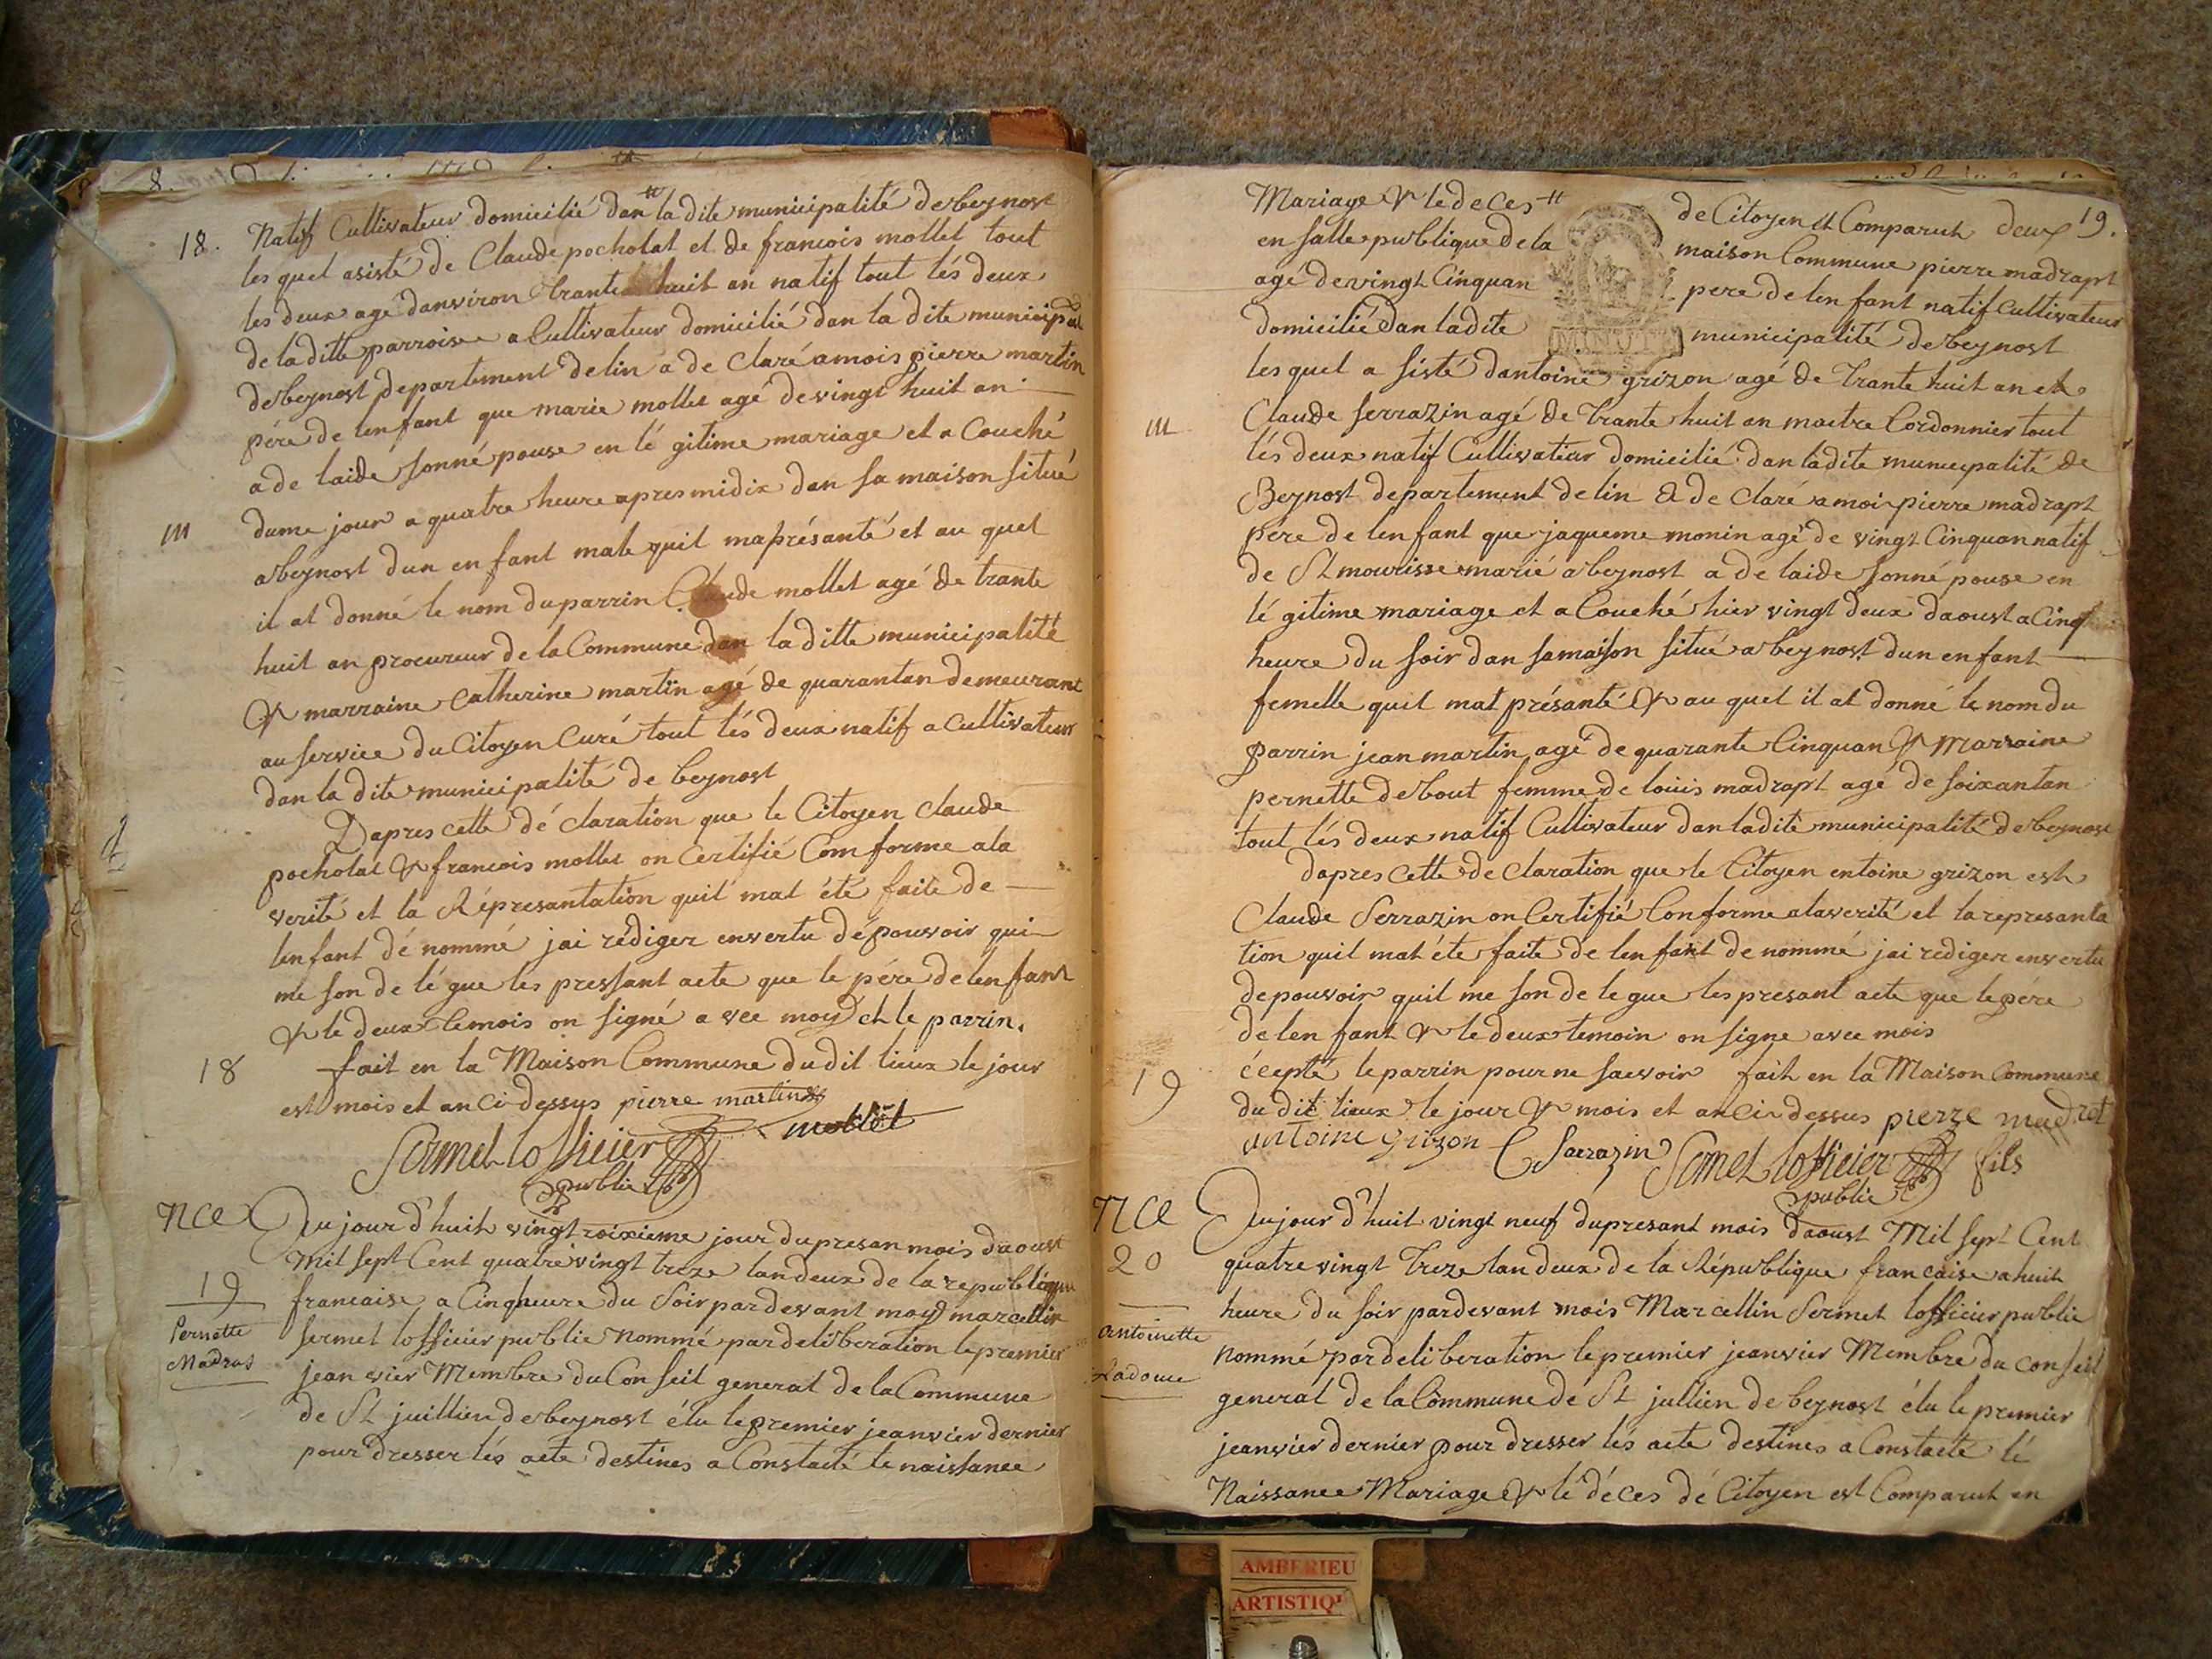 18.
Natif Cultivateur domicilié dan la dite municipalité de beynost
les quel asisté de Claude pocholat et de francois mollet tout
les deux agé danviron trante huit an natif tout lés deux
de la ditte parroisse a Cultivateur domicilié dan la dite municipal
de beynost departement delin a de claré a mois pierre martin
pére de lenfant que marie mollet agé de vingt huit an
a de laidé sonné pouse en lé gitime mariage et a Couché
dume jour a quatre heure apres midix dan sa maison situé
m
a beynost dun en fant male quil maprésanté et au quel
il at donné le nom du parrin Claude mollet agé de trante
huit an procureur de la Commune dan la ditte municipalité
& marraine catherine martin agé de quarantan demeurant
au service du Citoyen Curé tout lés deux natif a cultivateur
dan la dite municipalité de beynost
Dapres cette dé claration que le Citoyen claude
pocholat & francois mollet on certifié Comforme ala
verité et la Répresantation quil mat été faite de
lenfant dé nommé jai rédiger envertu dé pouvoir qui
me son de lé gue les pressant acte que le pére de lenfant
& le deux temois on signé a vec moy et le parrin.
18
fait en la Maison Commune du dit lieux le jour
est mois et an Ci dessus pierre martin
mollet
Sermet lofficier
public
Nce
Au jour d'huit vingt roixieme jour du presan mois daoust
Mil sept Cent quatre vingt treze lan deux de la republique
19
francaise a Cinq heure du Soir par devant moy marcellin
Pernette
Madras
sermet lofficier public nommé par deliberation le premier
jeanvier Membre du Conseil general de la Commune
de St juillien de beynost élu le premier jeanvier dernier
pour dresser lés acte destines a Constaté le naissance
Mariage & le deces
de Citoyen et Comparut deux 19.
en salle publique de la
maison Commune pierre madrapt
agé de vingt Cinquan
pere de lenfant natif cultivateur
domicilié dan la dite
municipalité de beynost
MINUTE
les quel a sisté dantoine grizon agé de trante huit an et
m
Claude serrazin agé de trante huit an maitre Cordonnier tout
lés deux natif Cultivateur domicilié dan la dite municipalité de
Beynost departement de lin & de claré a moi pierre madrapt
pére de lenfant que jaqueme monin agé de vingt Cinquan natif
de St mourisse marié a beynost a dé laide sonné pouse en
lé gitime mariage et a Couché hier vingt deux daoust a Cinq
heure du soir dan sa maison situé a beynost dun enfant
femelle quil mat présanté & au quel il at donné le nom du
parrin jean martin agé de quarante Cinquan & Marraine
pernette debout femme de louis madrapt agé de soixantan
tout lés deux natif Cultivateur dan la dite municipalité de beynost
dapres cette de claration que le Citoyen entoine grizon est
Claude Serrazin on Certifié Conforme ala verité et la represanta
tion quil mat éte faite de lenfant de nommé jai rediger envertu
de pouvoir quil me son de le gue les presant acte que le pére
de len fant & le deux temoin on signe avec mois
19
écepté le parrin pour ne scavoir fait en la Maison commune
du dit lieux le jour & mois et an ci dessus pierre madret
fils
antoine Grizon C Sarrazin Sermet lofficier
public
Nce
Aujour d'huit vingt neuf du presant mois daoust Mil sept Cent
20
quatre vingt treze lan deux de la République francaise a huit
heure du soir par devant mois Marcellin Sermet lofficier public
antoinette
nommé par deliberation le premier jeanvier Membre du conseil
general de la Commune de St jullien de beynost élu le premier
jeanvier dernier pour dresser lés acte destines a Constacté lé
Naissance Mariage & lé déces dé Citoyen est Comparut en
AMBERIEU
ARTISTIQ